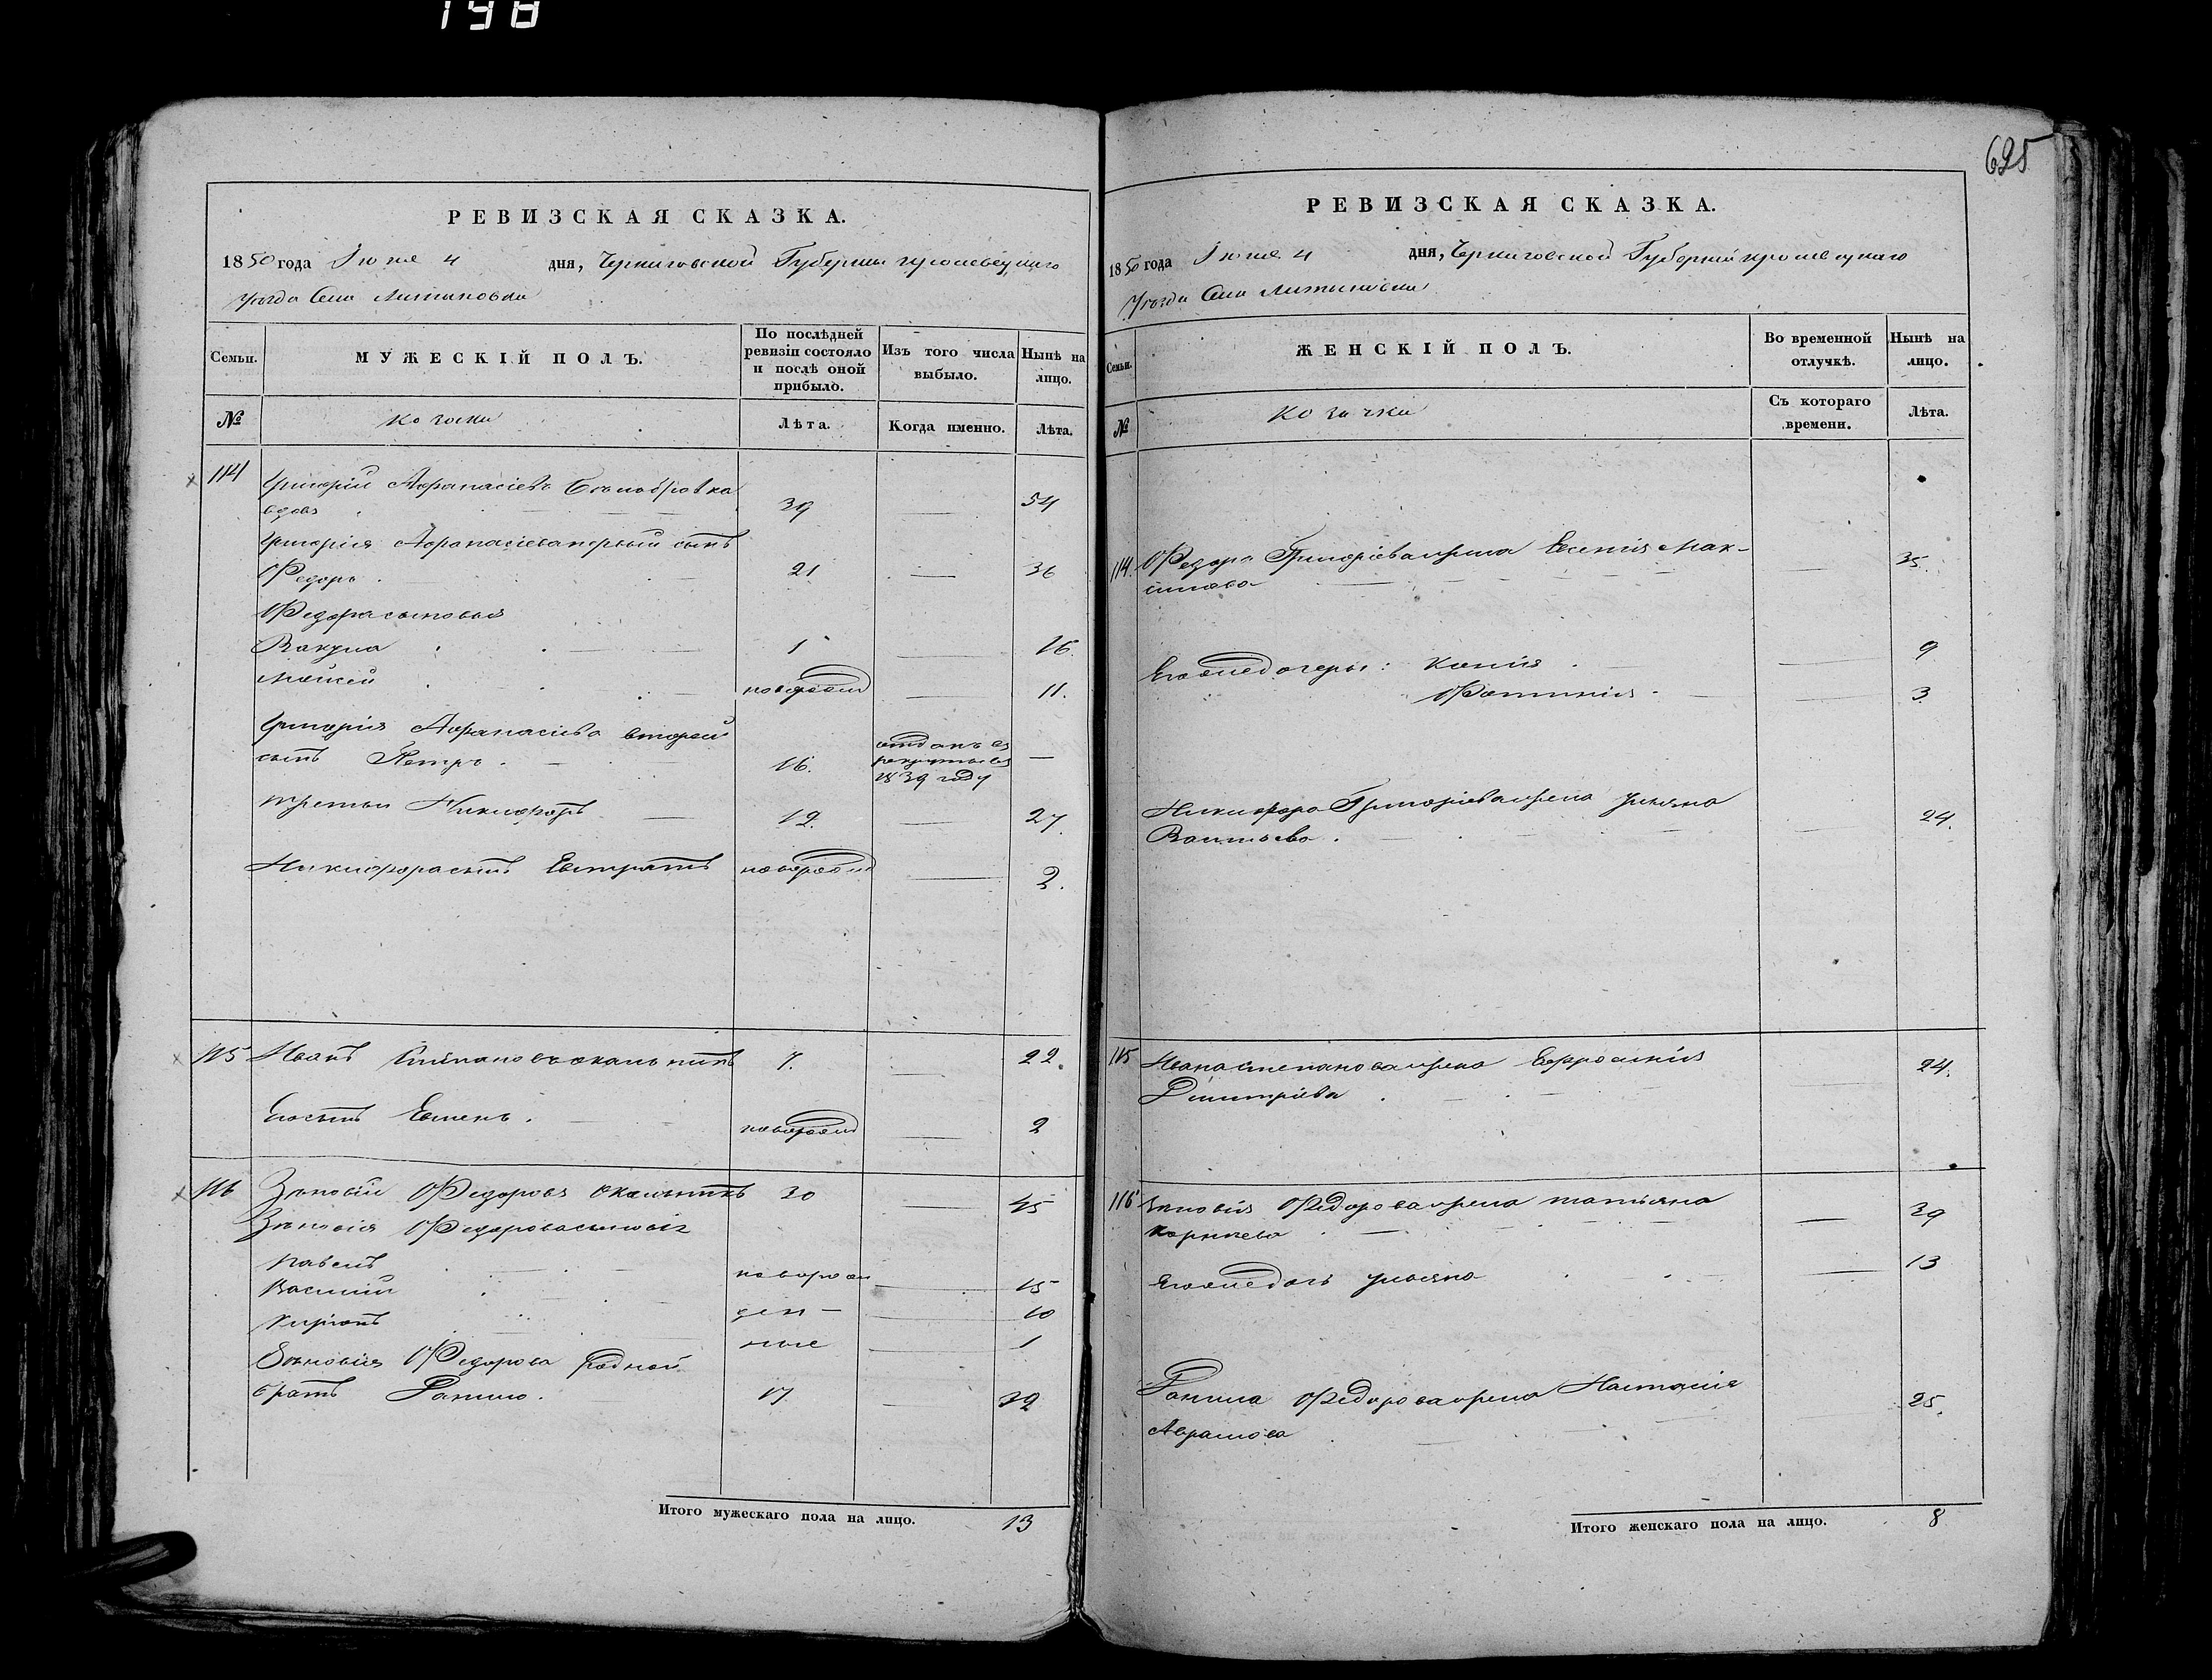 198
695
РЕВИЗСКАЯ СКАЗКА.
1850 года Июня 4 дня, Черниговской Губернии кролевецкаго
Уѣзда Села Литвиновки
Семьи.
МУЖЕСКІЙ ПОЛЪ.
По послѣдней ревизіи состояло и послѣ оной прибыло.
Изъ того числа выбыло.
Нынѣ на лицо.
№
Козаки
Лѣта.
Когда именно.
Лѣта.
114 Григорій Афанасіевъ
вдовъ 39 — 54
Григорія Афанасіева первый сынъ
Федоръ 21 — 36
Федора сыновья
Вакула 1 — 16.
Моисей новорожд — 11.
Григорія Афанасіева второй
сынъ Петръ 16. отданъ въ рекруты въ 1839 году —
третій Никифоръ 12. — 27.
Никифора сынъ Евстратъ новорожд — 2.
115 Иванъ Степановъ 7. — 22.
Его сынъ Евмена новорожд — 2
116 Зѣновій Федоровъ 30 — 45
Зѣновія Федорова сыновья
Павелъ новорож — 15
Василій ден — 10
Киріонъ ные — 1
Зѣновія Федорова родной
братъ Данило. 17. — 32
Итого мужескаго пола на лицо. 13
РЕВИЗСКАЯ СКАЗКА.
1850 года Июня 4 дня, Черниговской Губерніи кролевецкаго
Уѣзда Села Литвиновки
Семьи.
ЖЕНСКІЙ ПОЛЪ.
Во временной отлучкѣ.
Нынѣ на лицо.
№
Козачки
Съ котораго времени.
Лѣта.
114. Федора Григоріева жена Евгенія Мак-
симова — 35.
Его же дочери: Ксенія — 9
Фотинія — 3
Никифора Григоріева жена Ульяна
Васильева — 24.
115 Ивана Степанова жена Ефросинія
Дмитріева — 24.
116 Зѣновія Федорова жена Татьяна
Корнѣева — 39
Его же дочь Ульяна — 13
Данила Федорова жена Настасія
Аврамова — 25.
Итого женскаго пола на лицо. 8